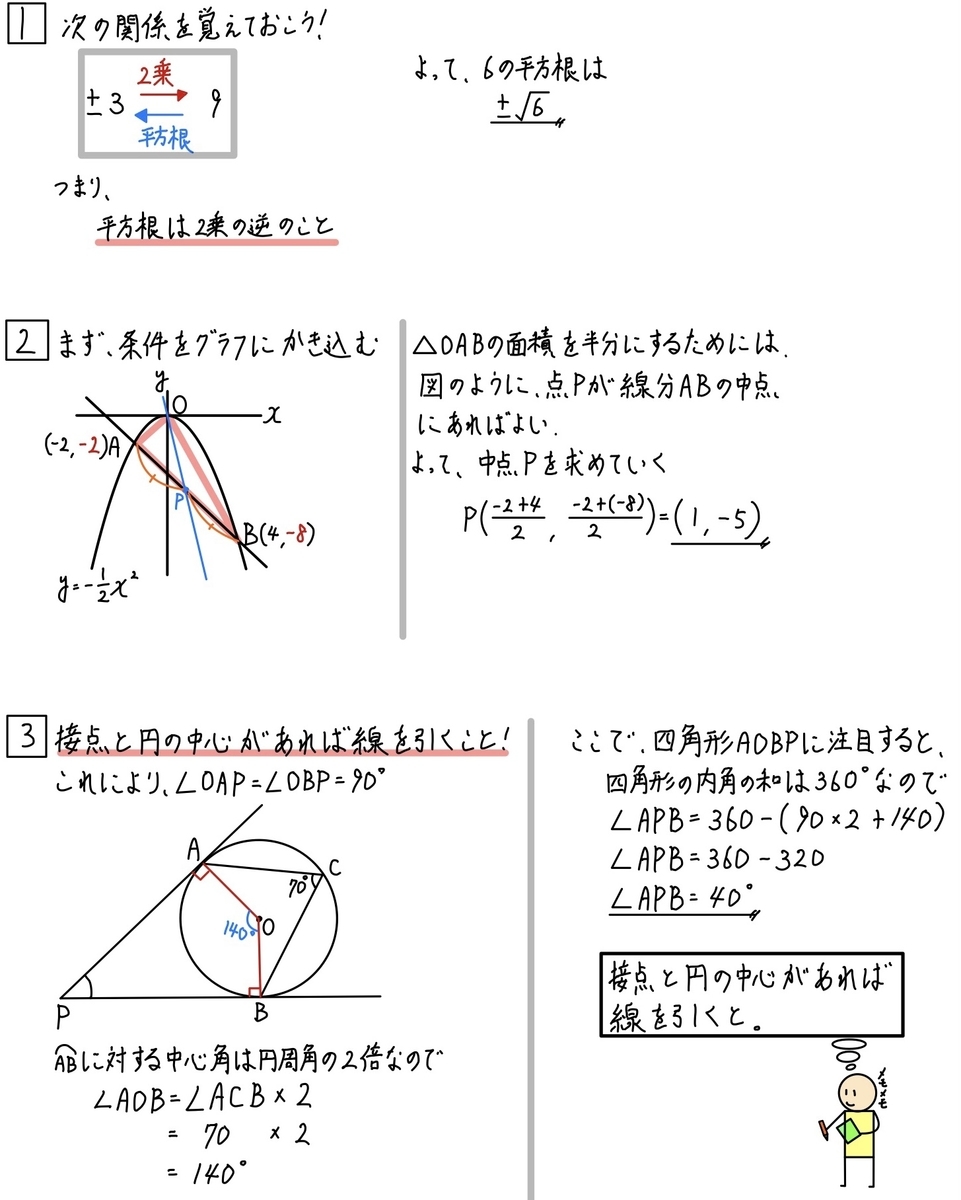 1 次の関係を覚えておこう!
2乗
±3 9
平方根
よって、6の平方根は
±√6
つまり、
平方根は2乗の逆のこと
2 まず、条件をグラフにかき込む
y
O
x
(-2,-2)A
P
B(4,-8)
y=-1/2x²
△OABの面積を半分にするためには、
図のように、点Pが線分ABの中点
にあればよい.
よって、中点Pを求めていく
P((-2+4)/2, (-2+(-8))/2)=(1,-5)
3 接点と円の中心があれば線を引くこと!
これにより、∠OAP=∠OBP=90°
A
C
70°
140°
O
P
B
⌒ABに対する中心角は円周角の2倍なので
∠AOB=∠ACB×2
= 70 ×2
= 140°
ここで、四角形AOBPに注目すると、
四角形の内角の和は360°なので
∠APB=360-(90×2+140)
∠APB=360-320
∠APB=40°
接点と円の中心があれば
線を引くと。
メモメモ